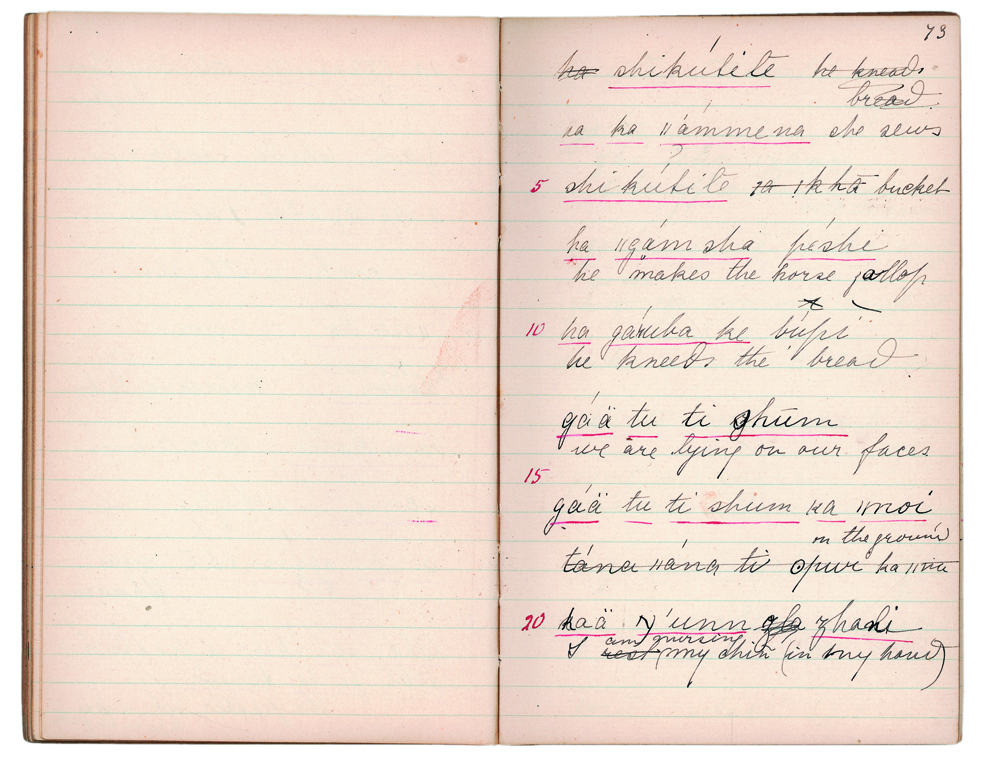 73
ha shikútite he kneads
bread
ka ǁámmena she sews
5 shikútite bucket
ha ǁgámsha péshe
he makes the horse gallop
10 ha gáruba ke búpi
he kneeds the bread
gáä tu ti ghum
we are lying on our faces
15
gáä tu ti shum ka ǁnoi
on the ground
tána ǁána ti
20 kaä zhadi
I am nursing my chin (in my hand)